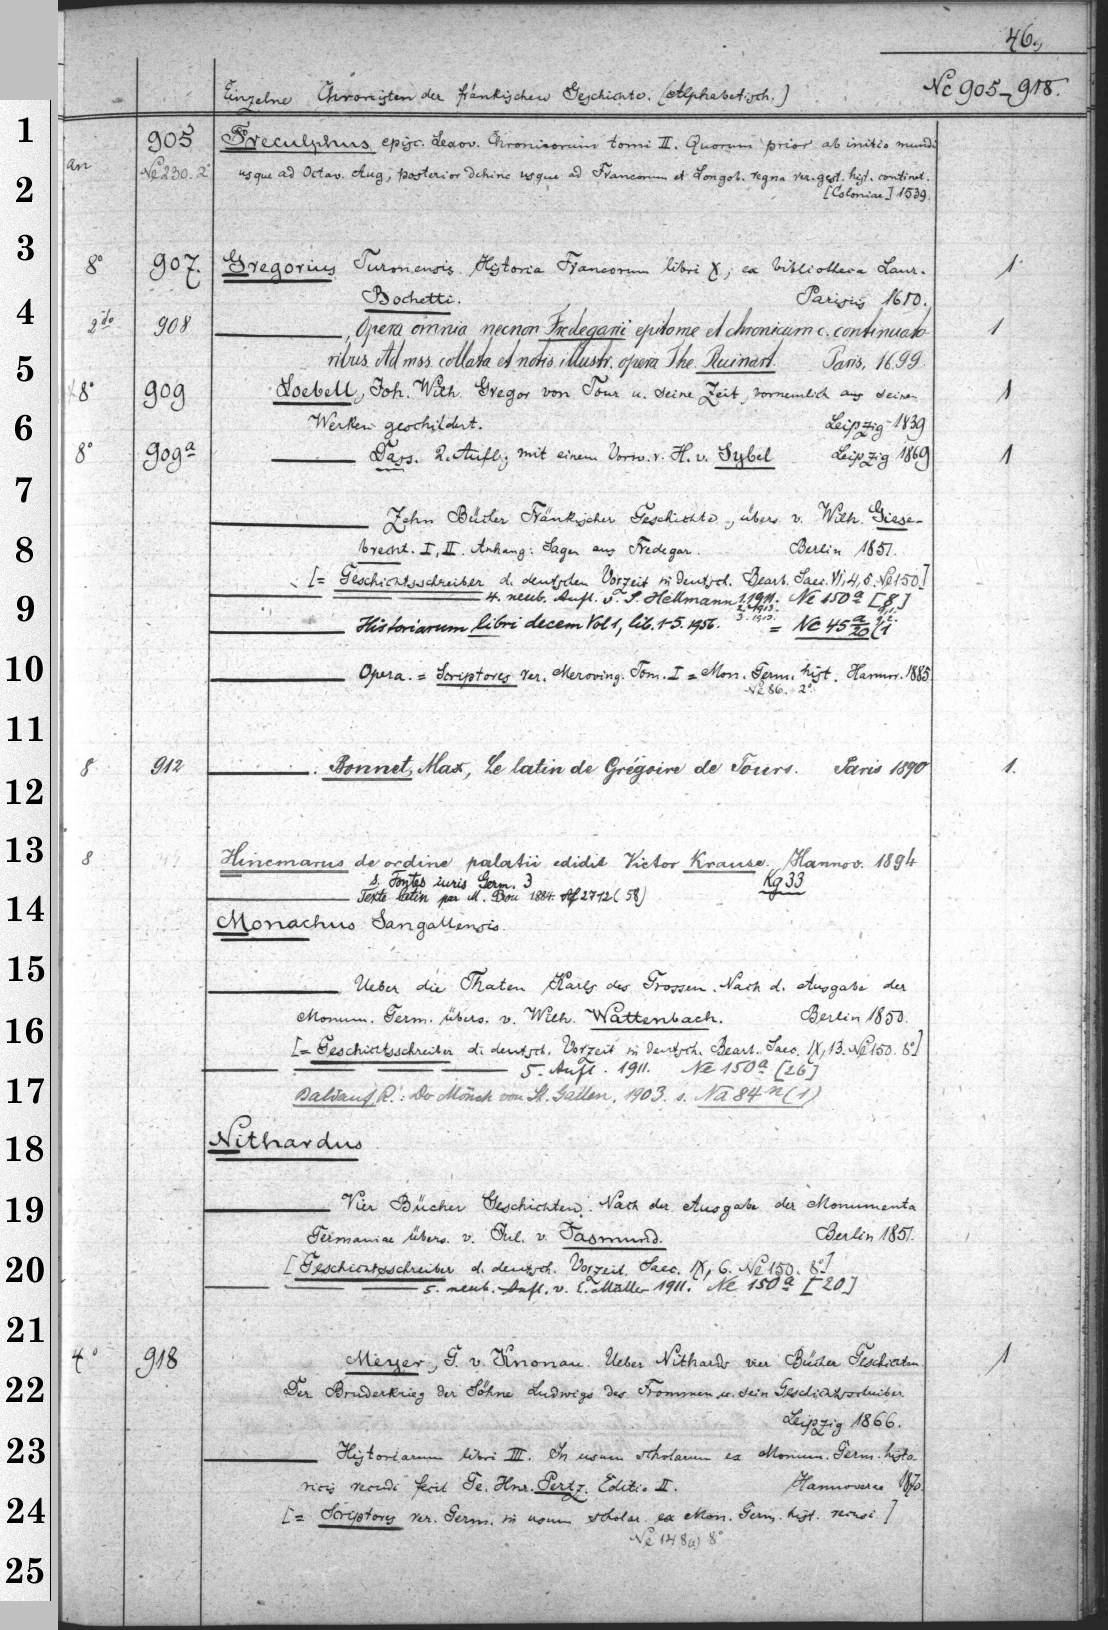 46.
Einzelne Chronisten der fränkischen Geschichte. (Alphabetisch.) Nc 905-918.
1 905 Freculphus, episc. Lexov. Chronicorum tomi II. Quorum prior ab initio mundi
an Nc 230. 2° usque ad Octav. Aug, posterior dehinc usque ad Francorum et Longob. regna rer. gest. hist. continet.
2 [Coloniae] 1539.
3 8° 907. Gregorius Turonensis. Historia Francorum libri X, ex bibliotheca Laur. 1
Bochetti. Parisiis 1610.
4 2do 908 Opera omnia necnon Fredegarii epitome et chronicum c. continuato- 1
ribus. Ad mss. collata et notis illustr. opera The. Ruinart. Paris, 1699.
5 8° 909 Loebell, Joh. Wilh. Gregor von Tour u. seine Zeit, vornemlich aus seinen 1
6 Werken geschildert. Leipzig 1839
8° 909a Dass. 2. Aufl; mit einem Vorw. v. H. v. Sybel Leipzig 1869 1
7
Zehn Bücher Fränkischer Geschichte, übers. v. Wilh. Giese-
8 brecht. I, II. Anhang: Sagen aus Fredegar. Berlin 1851.
[= Geschichtsschreiber d. deutschen Vorzeit in deutsch. Bearb. Saec. VI, 4, 5. Nc 150]
4. neub. Aufl. v. S. Hellmann 1. 1911. Nc 150a [8]
2. 1913.
3. 1913.
9 Historiarum libri decem Vol 1, lib. 1-5. 1956. = Nc 45 a/20 (1
10 Opera. = Scriptores rer. Meroving. Tom. I = Mon. Germ. hist. Hannov. 1885
Nc 86. 2°
11
8 912 Bonnet, Max, Le latin de Grégoire de Tours. Paris 1890 1.
12
13 8 Hincmarus de ordine palatii edidit Victor Krause. Hannov. 1894
s. Fontes iuris Germ. 3 Kg 33
Texte latin par M. Prou 1884. Af 2712 (58)
14 Monachus Sangallensis.
15 Ueber die Thaten Karls des Grossen. Nach d. Ausgabe der
16 Monum. Germ. übers. v. Wilh. Wattenbach. Berlin 1850.
[= Geschichtsschreiber d. deutsch. Vorzeit in deutsch. Bearb. Saec. IX, 13. Nc 150. 8°]
5. Aufl. 1911. Nc 150a [26]
17 Baldauf, R.: Der Mönch von St. Gallen, 1903. s. Na 84n (1)
18 Nithardus
19 Vier Bücher Geschichten. Nach der Ausgabe der Monumenta
Germaniae übers. v. Jul. v. Jasmund. Berlin 1851.
20 [Geschichtsschreiber d. deutsch. Vorzeit. Saec. IX, 6. Nc 150. 8°]
5. neub. Aufl. v. E. Müller 1911. Nc 150a [20]
21
4° 918 Meyer, G. v. Knonau. Ueber Nithards vier Bücher Geschichten. 1
22 Der Bruderkrieg der Söhne Ludwigs des Frommen u. sein Geschichtsschreiber
Leipzig 1866.
23 Historiarum libri III. In usum scholarum ex Monum. Germ. histo-
ricis recudi fecit Ge. Hnr. Pertz. Editio II. Hannoverae 1870.
24 [= Scriptores rer. Germ. in usum scholar. ex Mon. Germ. hist. recusi.]
Nc 148a) 8°
25